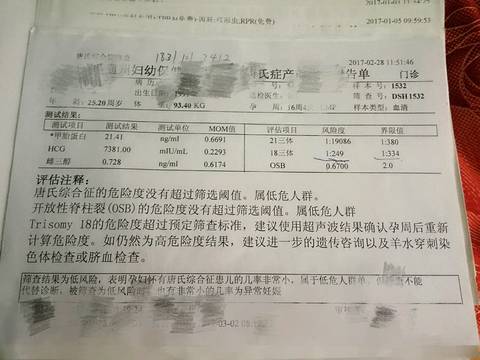 2017-01-05 09:59:53
2017-02-28 11:51:46
唐氏综合征
183
妇幼保 氏症产 告单 门诊
样本号 1532
出生日 送检医生 筛查号: DSH1532
年 龄: 25.20 周岁 体 重: 93.40 KG 孕 周: 16周 样本类型: 血清
测试结果:
测试项目 测试结果 测试单位 MOM值 评估项目 风险度 界限值
*甲胎蛋白 21.41 ng/ml 0.6691 21三体 1:19086 1:380
HCG 7381.00 mIU/mL 0.2293 18三体 1:249 1:334
雌三醇 0.728 ng/ml 0.6174 OSB 0.6700 2.0
评估注释:
唐氏综合征的危险度没有超过筛选阈值。属低危人群。
开放性脊柱裂(OSB)的危险度没有超过筛选阈值。属低危人群
Trisomy 18的危险度超过预定筛查标准，建议使用超声波结果确认孕周后重新
计算危险度。如仍然为高危险度结果，建议进一步的遗传咨询以及羊水穿刺染
色体检查或脐血检查。
筛查结果为低风险，表明孕妇怀有唐氏综合征患儿的几率非常小，属于低危人群 不能
代替诊断，被筛查为低风险 也有非常小的几率为异常妊娠
03-02